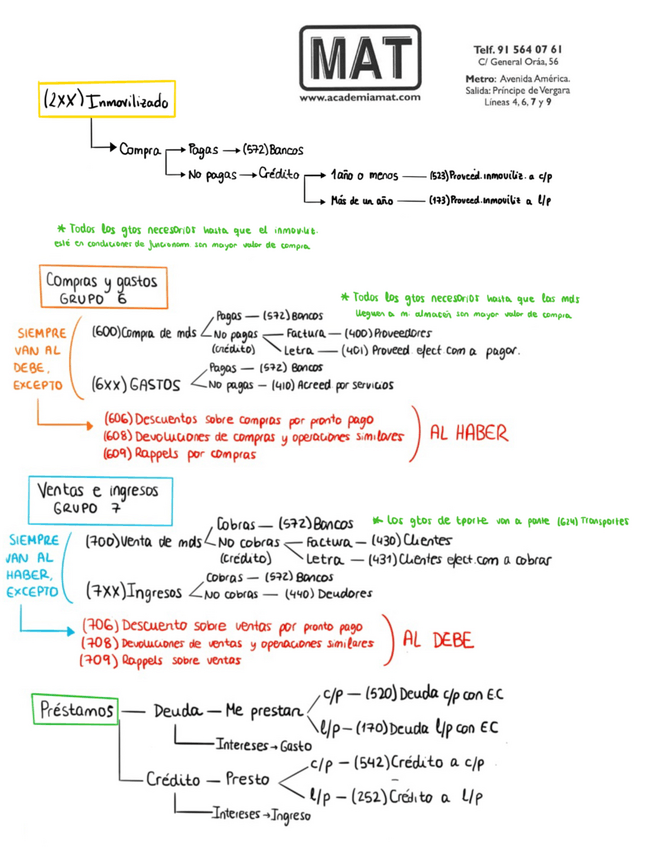 MAT
www.academiamat.com
Telf. 91 564 07 61
C/ General Oráa, 56
Metro: Avenida América.
Salida: Príncipe de Vergara
Líneas 4, 6, 7 y 9
(2XX) Inmovilizado
Compra
Pagas → (572) Bancos
No pagas → Crédito
1 año o menos — (523) Proveed. inmoviliz. a c/p
Más de un año — (173) Proveed. inmoviliz a l/p
* Todos los gtos necesarios hasta que el inmoviliz.
esté en condiciones de funcionam. son mayor valor de compra
Compras y gastos
GRUPO 6
* Todos los gtos necesarios hasta que las mds
lleguen a mi almacén son mayor valor de compra
SIEMPRE
VAN AL
DEBE,
EXCEPTO
(600) Compra de mds
Pagas — (572) Bancos
No pagas — Factura — (400) Proveedores
(crédito) Letra — (401) Proveed efect. com a pagar.
(6XX) GASTOS
Pagas — (572) Bancos
No pagas — (410) Acreed. por servicios
(606) Descuentos sobre compras por pronto pago
(608) Devoluciones de compras y operaciones similares
(609) Rappels por compras
AL HABER
Ventas e ingresos
GRUPO 7
* Los gtos de tporte van a parte (624) Transportes
SIEMPRE
VAN AL
HABER,
EXCEPTO
(700) Venta de mds
Cobras — (572) Bancos
No cobras — Factura — (430) Clientes
(crédito) Letra — (431) Clientes efect. com a cobrar
(7XX) Ingresos
Cobras — (572) Bancos
No cobras — (440) Deudores
(706) Descuento sobre ventas por pronto pago
(708) Devoluciones de ventas y operaciones similares
(709) Rappels sobre ventas
AL DEBE
Préstamos — Deuda — Me prestan
c/p — (520) Deuda c/p con EC
l/p — (170) Deuda l/p con EC
Intereses → Gasto
Crédito — Presto
c/p — (542) Crédito a c/p
l/p — (252) Crédito a l/p
Intereses → Ingreso